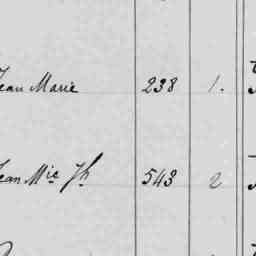 Jean Marie 238 1.
Jean Mic Jh. 543 2